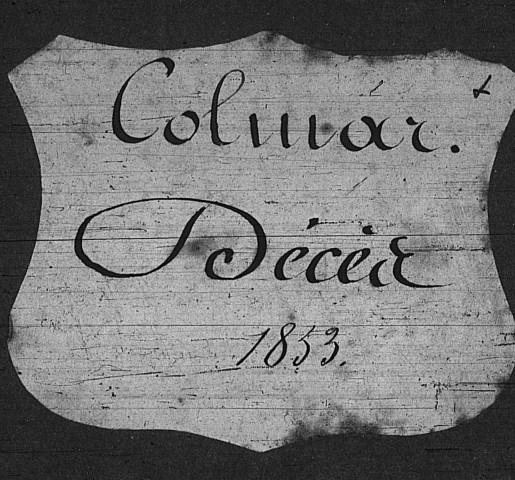 Colmar.
Décès
1853.